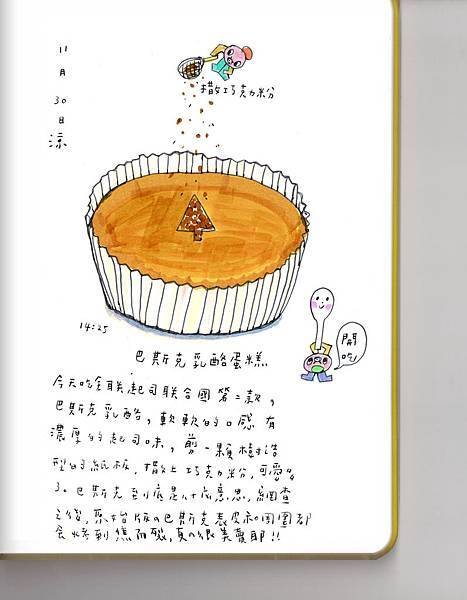 11月30日 涼
撒巧克力粉
14:25
開吃
巴斯克乳酪蛋糕
今天吃全联起司联合國第二款，
巴斯克乳酪，軟軟的口感 有
濃厚的起司味，剪一顆樹造
型的紙板，撒上巧克力粉，可愛多
3。巴斯克到底是什底意思，網查
之後，原
版的巴斯克表皮和周圍都
會烤到焦
酸，真的很美
耶!!